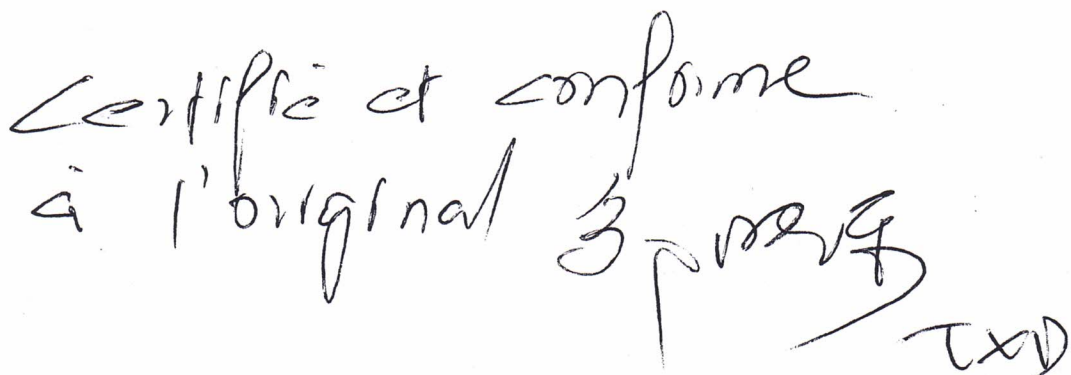 Certifié et conforme
à l'original 3 pages
TXD